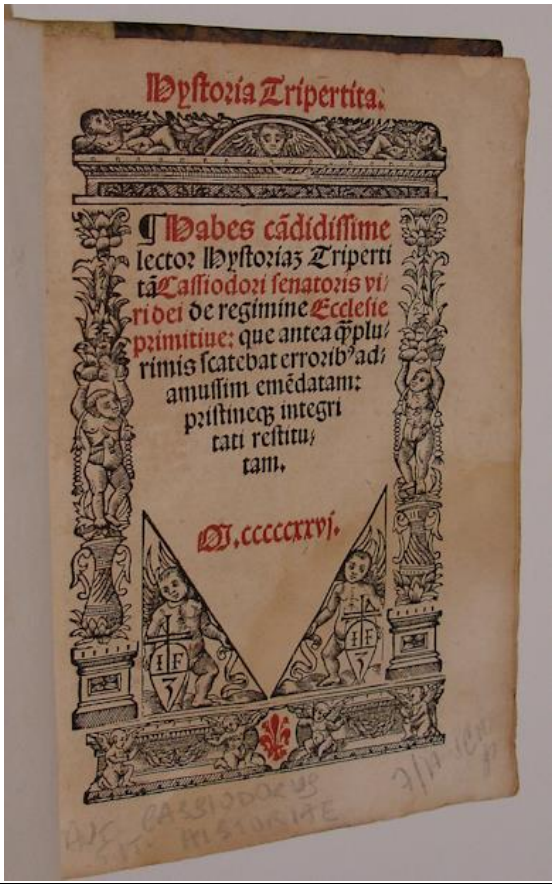 Hystoria Tripertita.
¶Habes cādidissime
lector Hystoriaȝ Triperti
tā Cassiodori senatoris vi/
ri dei de regimine Ecclesie
primitiue: que antea qͫplu/
rimis scatebat erroribꝰ ad/
amussim emēdatam:
pristineqꝫ integri
tati restitu/
tam.
M.cccccxxvj.
I F
I F
AUC CASSIODORUS
TIT HISTORIAE